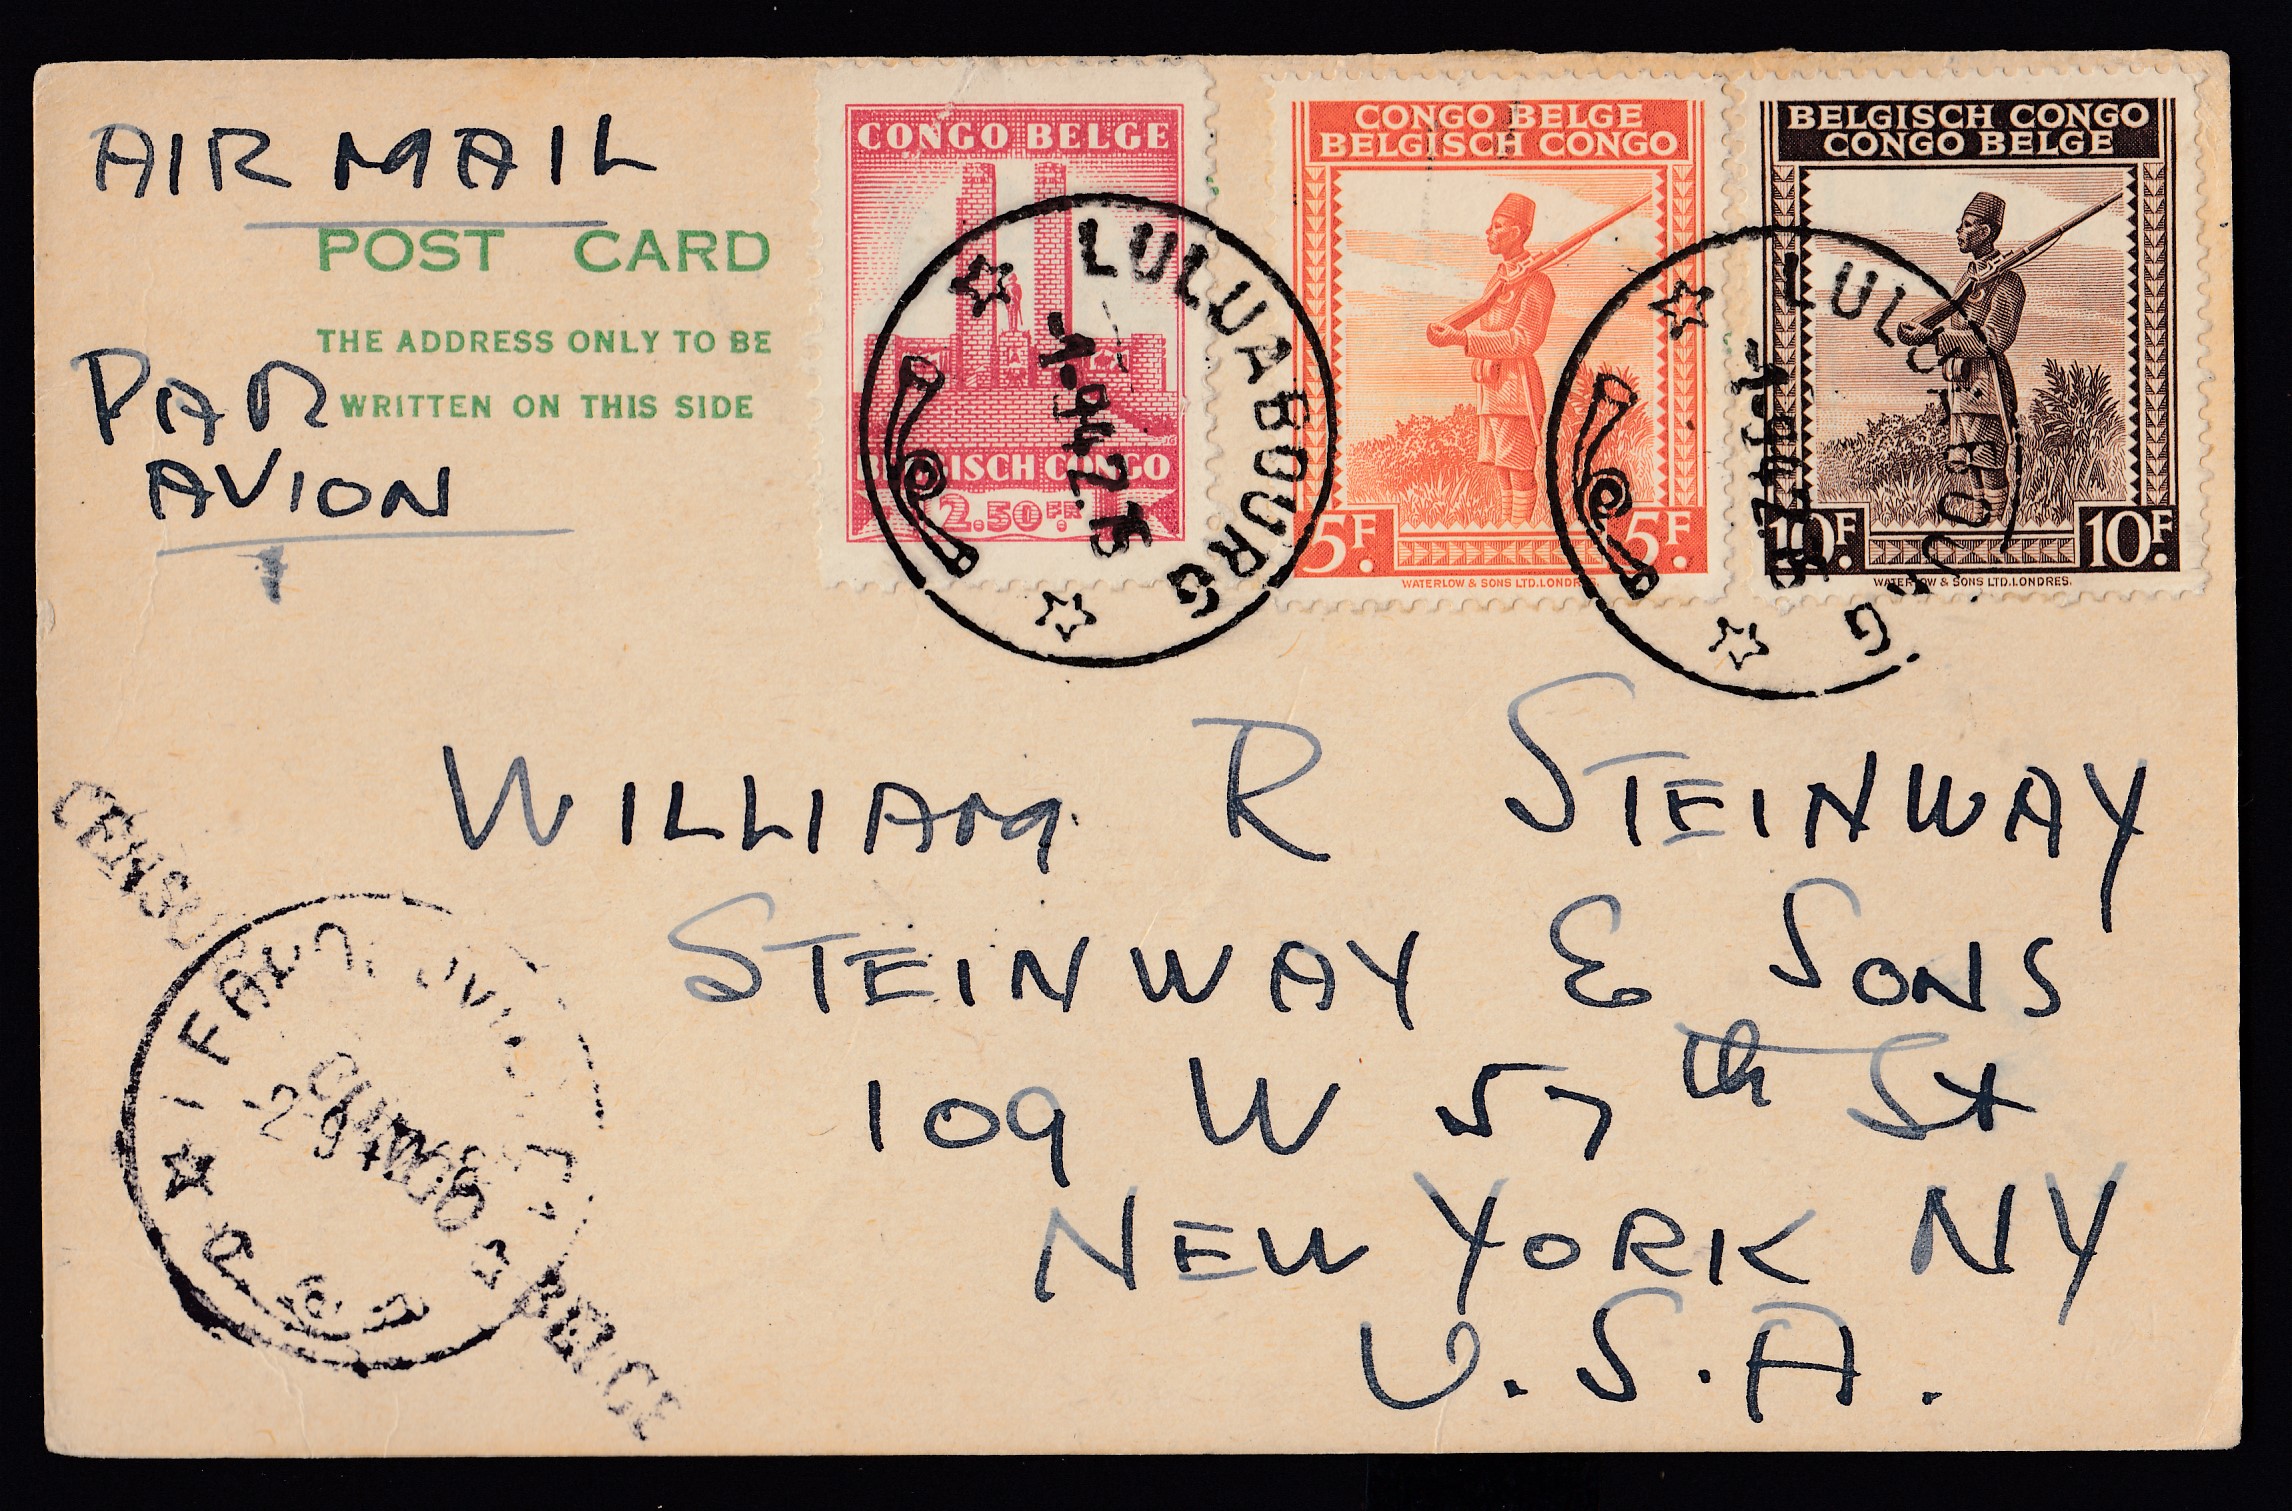 AIR MAIL
POST CARD
THE ADDRESS ONLY TO BE
WRITTEN ON THIS SIDE
PAR
AVION
CONGO BELGE
BELGISCH CONGO
2.50 FR
CONGO BELGE
BELGISCH CONGO
5F. 5F.
WATERLOW & SONS LTD. LONDRES.
BELGISCH CONGO
CONGO BELGE
10F. 10F.
WATERLOW & SONS LTD. LONDRES.
LULUABOURG
LULUABOURG
WILLIAM R STEINWAY
STEINWAY & SONS
109 W 57th St
NEW YORK NY
U.S.A.
BELGE